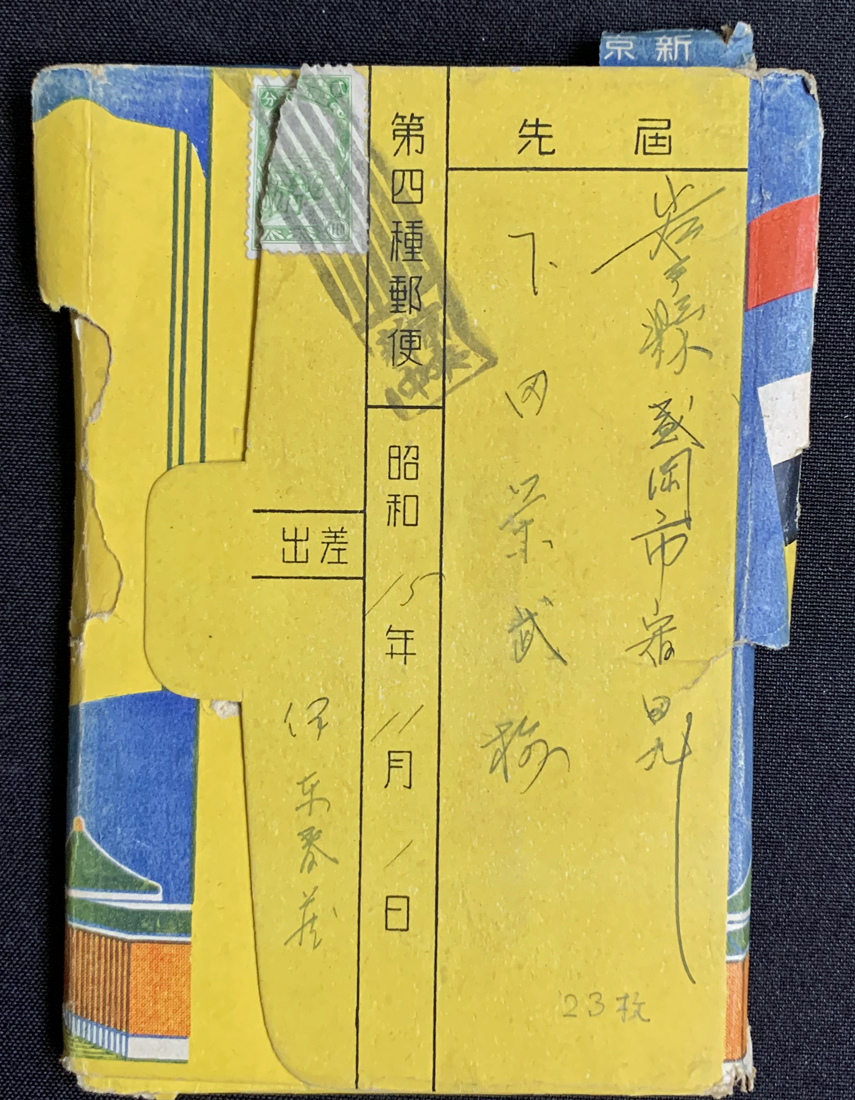 新京
屆先
岩手縣盛岡市
下田 武 様
第四種郵便
昭和15年11月1日
差出
伊东春
23枚
分